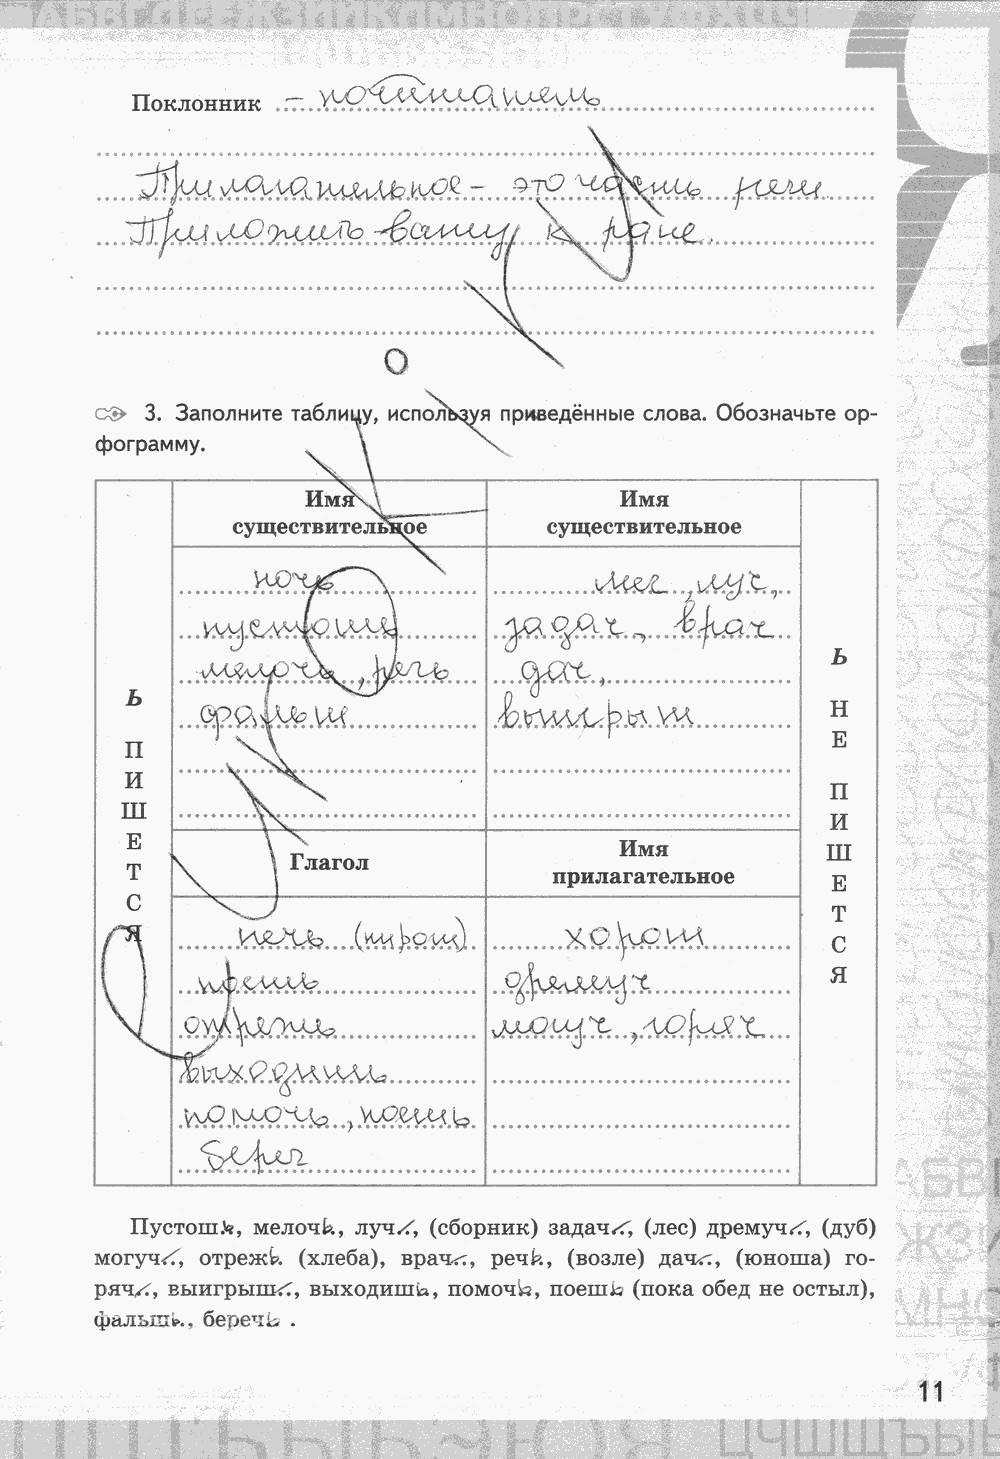 Поклонник – почитатель
Прилагательное – это часть речи.
Приложить вату к ране.
3. Заполните таблицу, используя приведённые слова. Обозначьте ор-
фограмму.
Ь ПИШЕТСЯ
Имя существительное
ночь
пустошь
мелочь, речь
фальш
Имя существительное
мяг, луч,
задач, врач
дач,
выигрыш
Ь НЕ ПИШЕТСЯ
Глагол
печь (пирог)
поешь
отрежь
выходишь
помочь, поешь
берег
Имя прилагательное
хорош
дремуч
могуч, горяч
Пустошь, мелочь, луч, (сборник) задач, (лес) дремуч, (дуб)
могуч, отрежь (хлеба), врач, речь, (возле) дач, (юноша) го-
ряч, выигрыш, выходишь, помочь, поешь (пока обед не остыл),
фальшь, беречь .
11